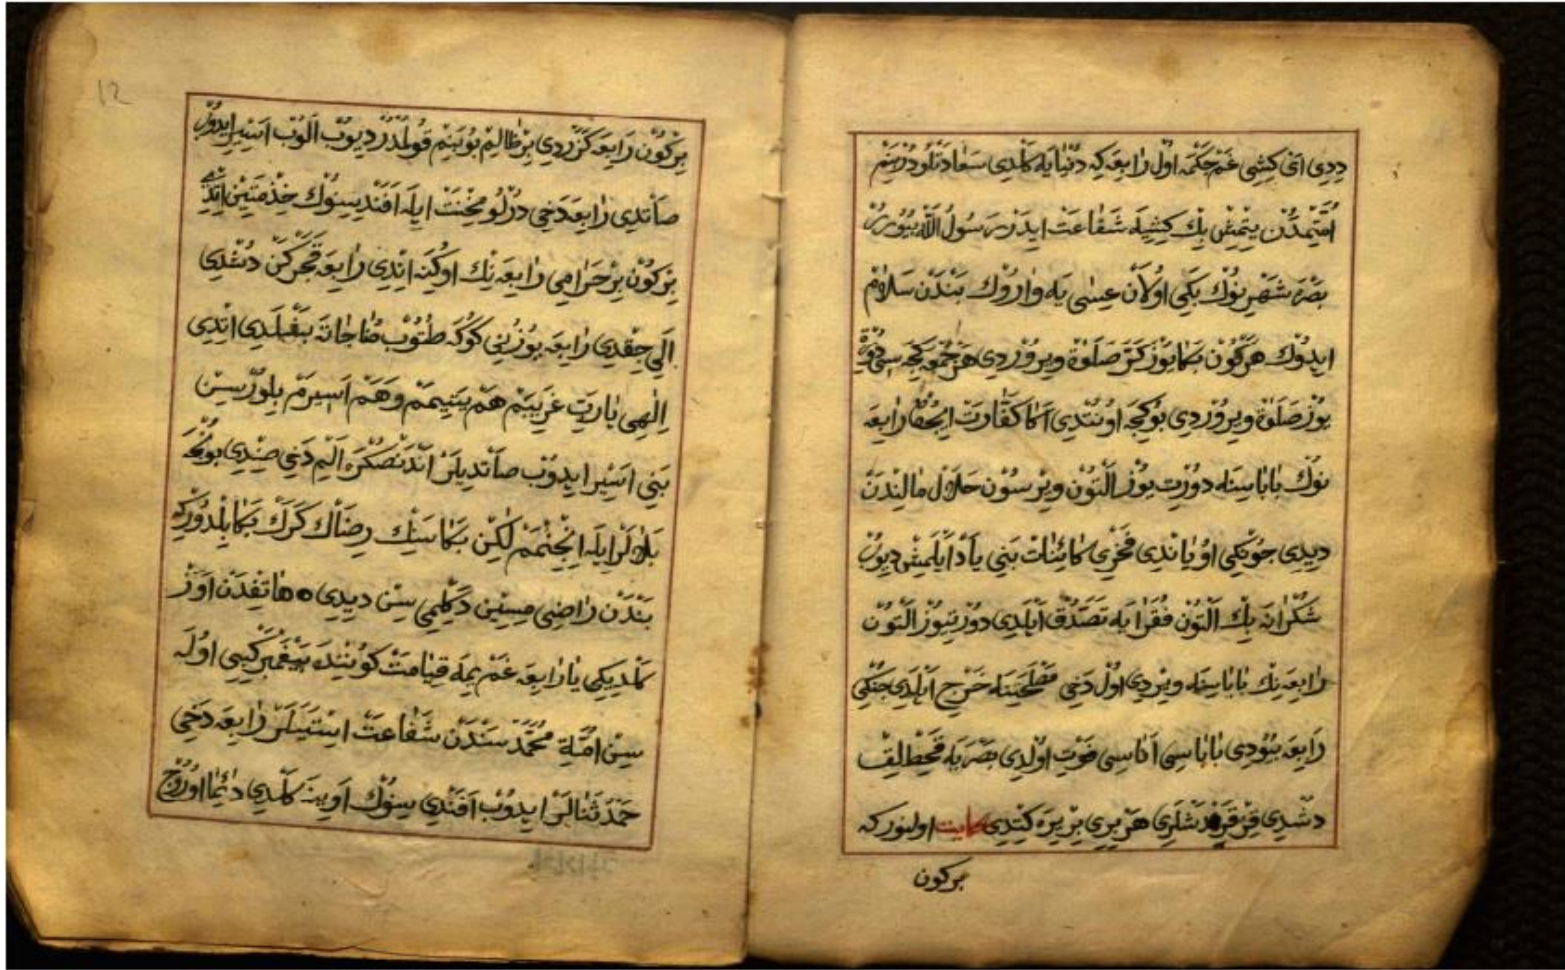 ددی ای کشی غم چکمه اول رابعه که دنیایه کلدی سعادتلودر بنم
امتمدن یتمش بك کشیه شفاعت ایدر رسول الله بیورر
بصره شهرینوك بکی اولان عیسی یه واروك بندن سلام
ایدوك هر کون بکا یوز کز صلوة ویروردی هر جمعه کیجه سی درت
یوز صلوة ویروردی بو کیجه اونتدی اکا کفارت ایچون رابعه
نوك باباسنه دورت یوز التون ویرسون حلال مالندن
دیدی چونکی اویاندی فخری کائنات بنی یاد ایلمش دیوب
شکرانه بك التون فقرایه تصدق ایلدی دورتیوز التون
رابعه نك باباسنه ویردی اول دخی مصلحتینه خرج ایلدی چنکی
رابعه بیودی باباسی اناسی فوت اولدی بصریه قحطلق
دشدی قز قرندشلری هر بری بر یره کتدی حکایت اولنور که
برکون
12
بر کون رابعه کزردی بر ظالم بو بنم قولمدر دیوب الوب اسیر ایدوب
صاتدی رابعه دخی درلو محنت ایله افندیسنوك خذمتین ایتدی
بر کون بر حرامی رابعه نك اوکنه اندی رابعه قچرکن دشدی
الی چقدی رابعه یوزنی کوکه طتوب مناجاته بشلدی اتدی
الهی یارب غریبم هم یتیمم وهم اسیرم بلورسن
بنی اسیر ایدوب صاتدیلر اندنصکره الیم دخی صندی بونجه
بلالر ایله انجنمم لکن بکا سنك رضاك کرك بکا بلدورکه
بندن راضی میسین دکلمی سن دیدی ه هاتفدن اواز
کلدیکی یا رابعه غم یمه قیامت کوننده پیغمبر کیبی اوله
سن امة محمد سندن شفاعت استیه لر رابعه دخی
حمد ثنالر ایدوب افندیسنوك اوینه کلدی دائما اوروج